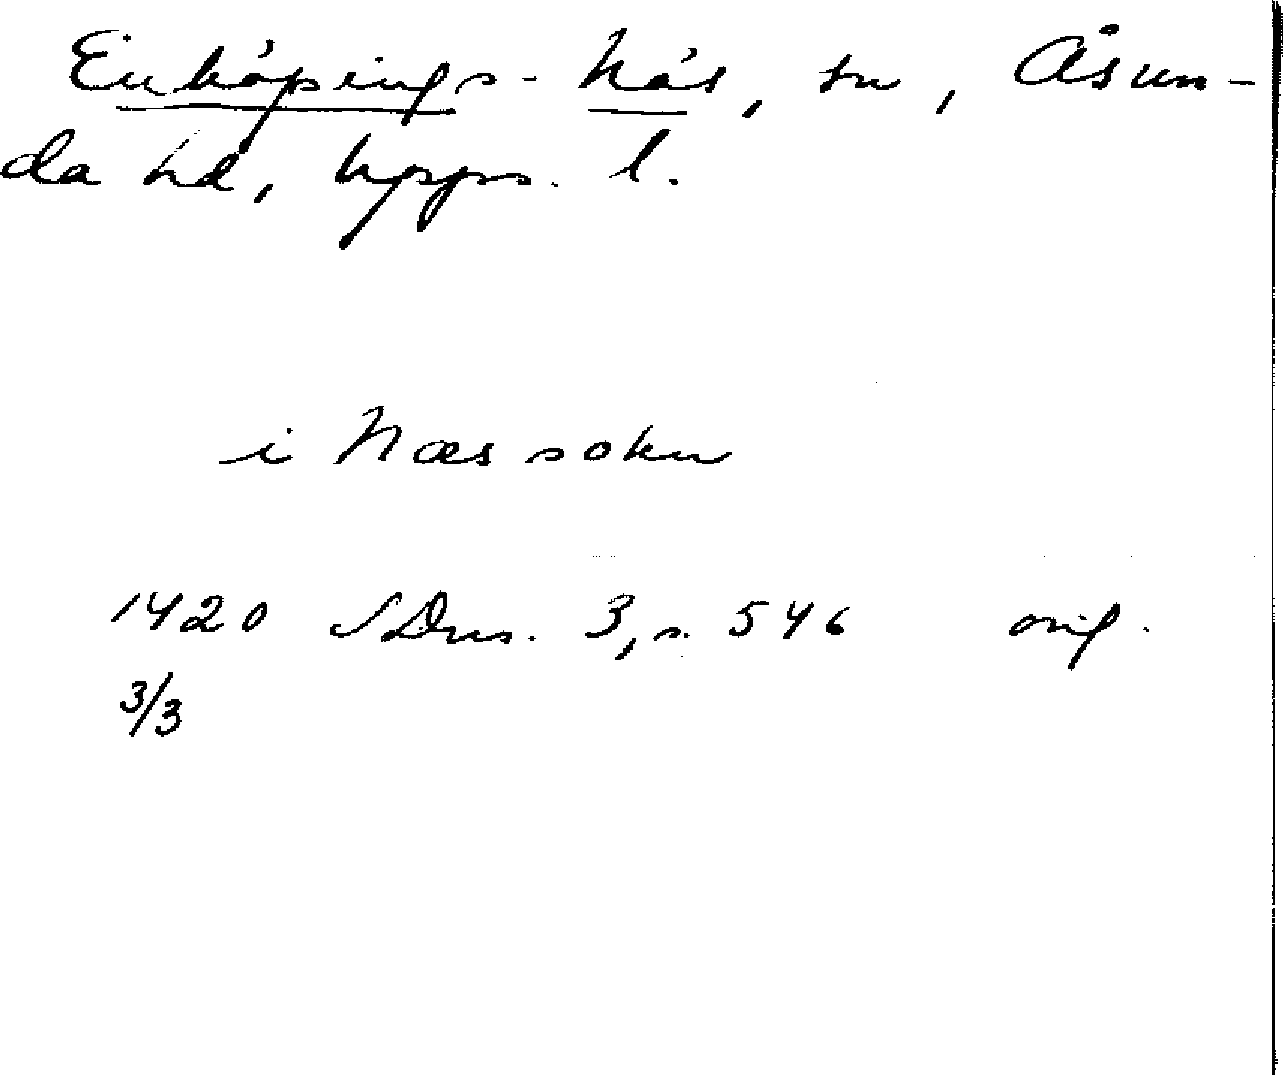 Enköpings-Näs, sn, Åsun-
da hd, Upps. l.
i Næs sokn
1420 SDns. 3, s. 546 orig.
3/3